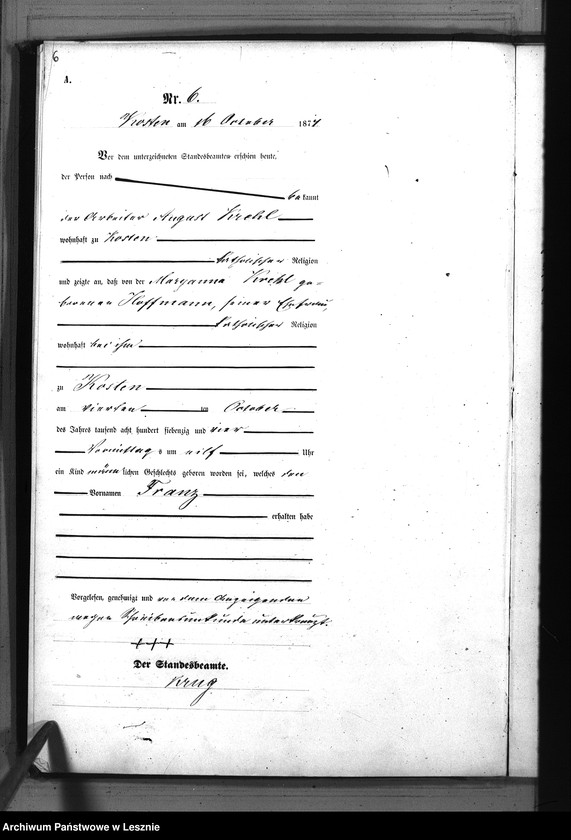 6
A.
Nr. 6.
Kosten am 16 October 1874
Vor dem unterzeichneten Standesbeamten erschien heute,
der Person nach
bekannt
der Arbeiter August Krehl
wohnhaft zu Kosten
katholischer Religion
und zeigte an, daß von der Maryanna Krehl ge-
borenen Hoffmann, seiner Ehefrau,
katholischer Religion
wohnhaft bei ihm
zu Kosten
am vierten ten October
des Jahres tausend acht hundert siebenzig und vier
Vormittag s um eilf Uhr
ein Kind männlichen Geschlechts geboren worden sei, welches den
Vornamen Franz
erhalten habe
Vorgelesen, genehmigt und von dem Anzeigenden
wegen Schreibensunkunde unterkreuzt.
+++
Der Standesbeamte.
Krug
Archiwum Państwowe w Lesznie